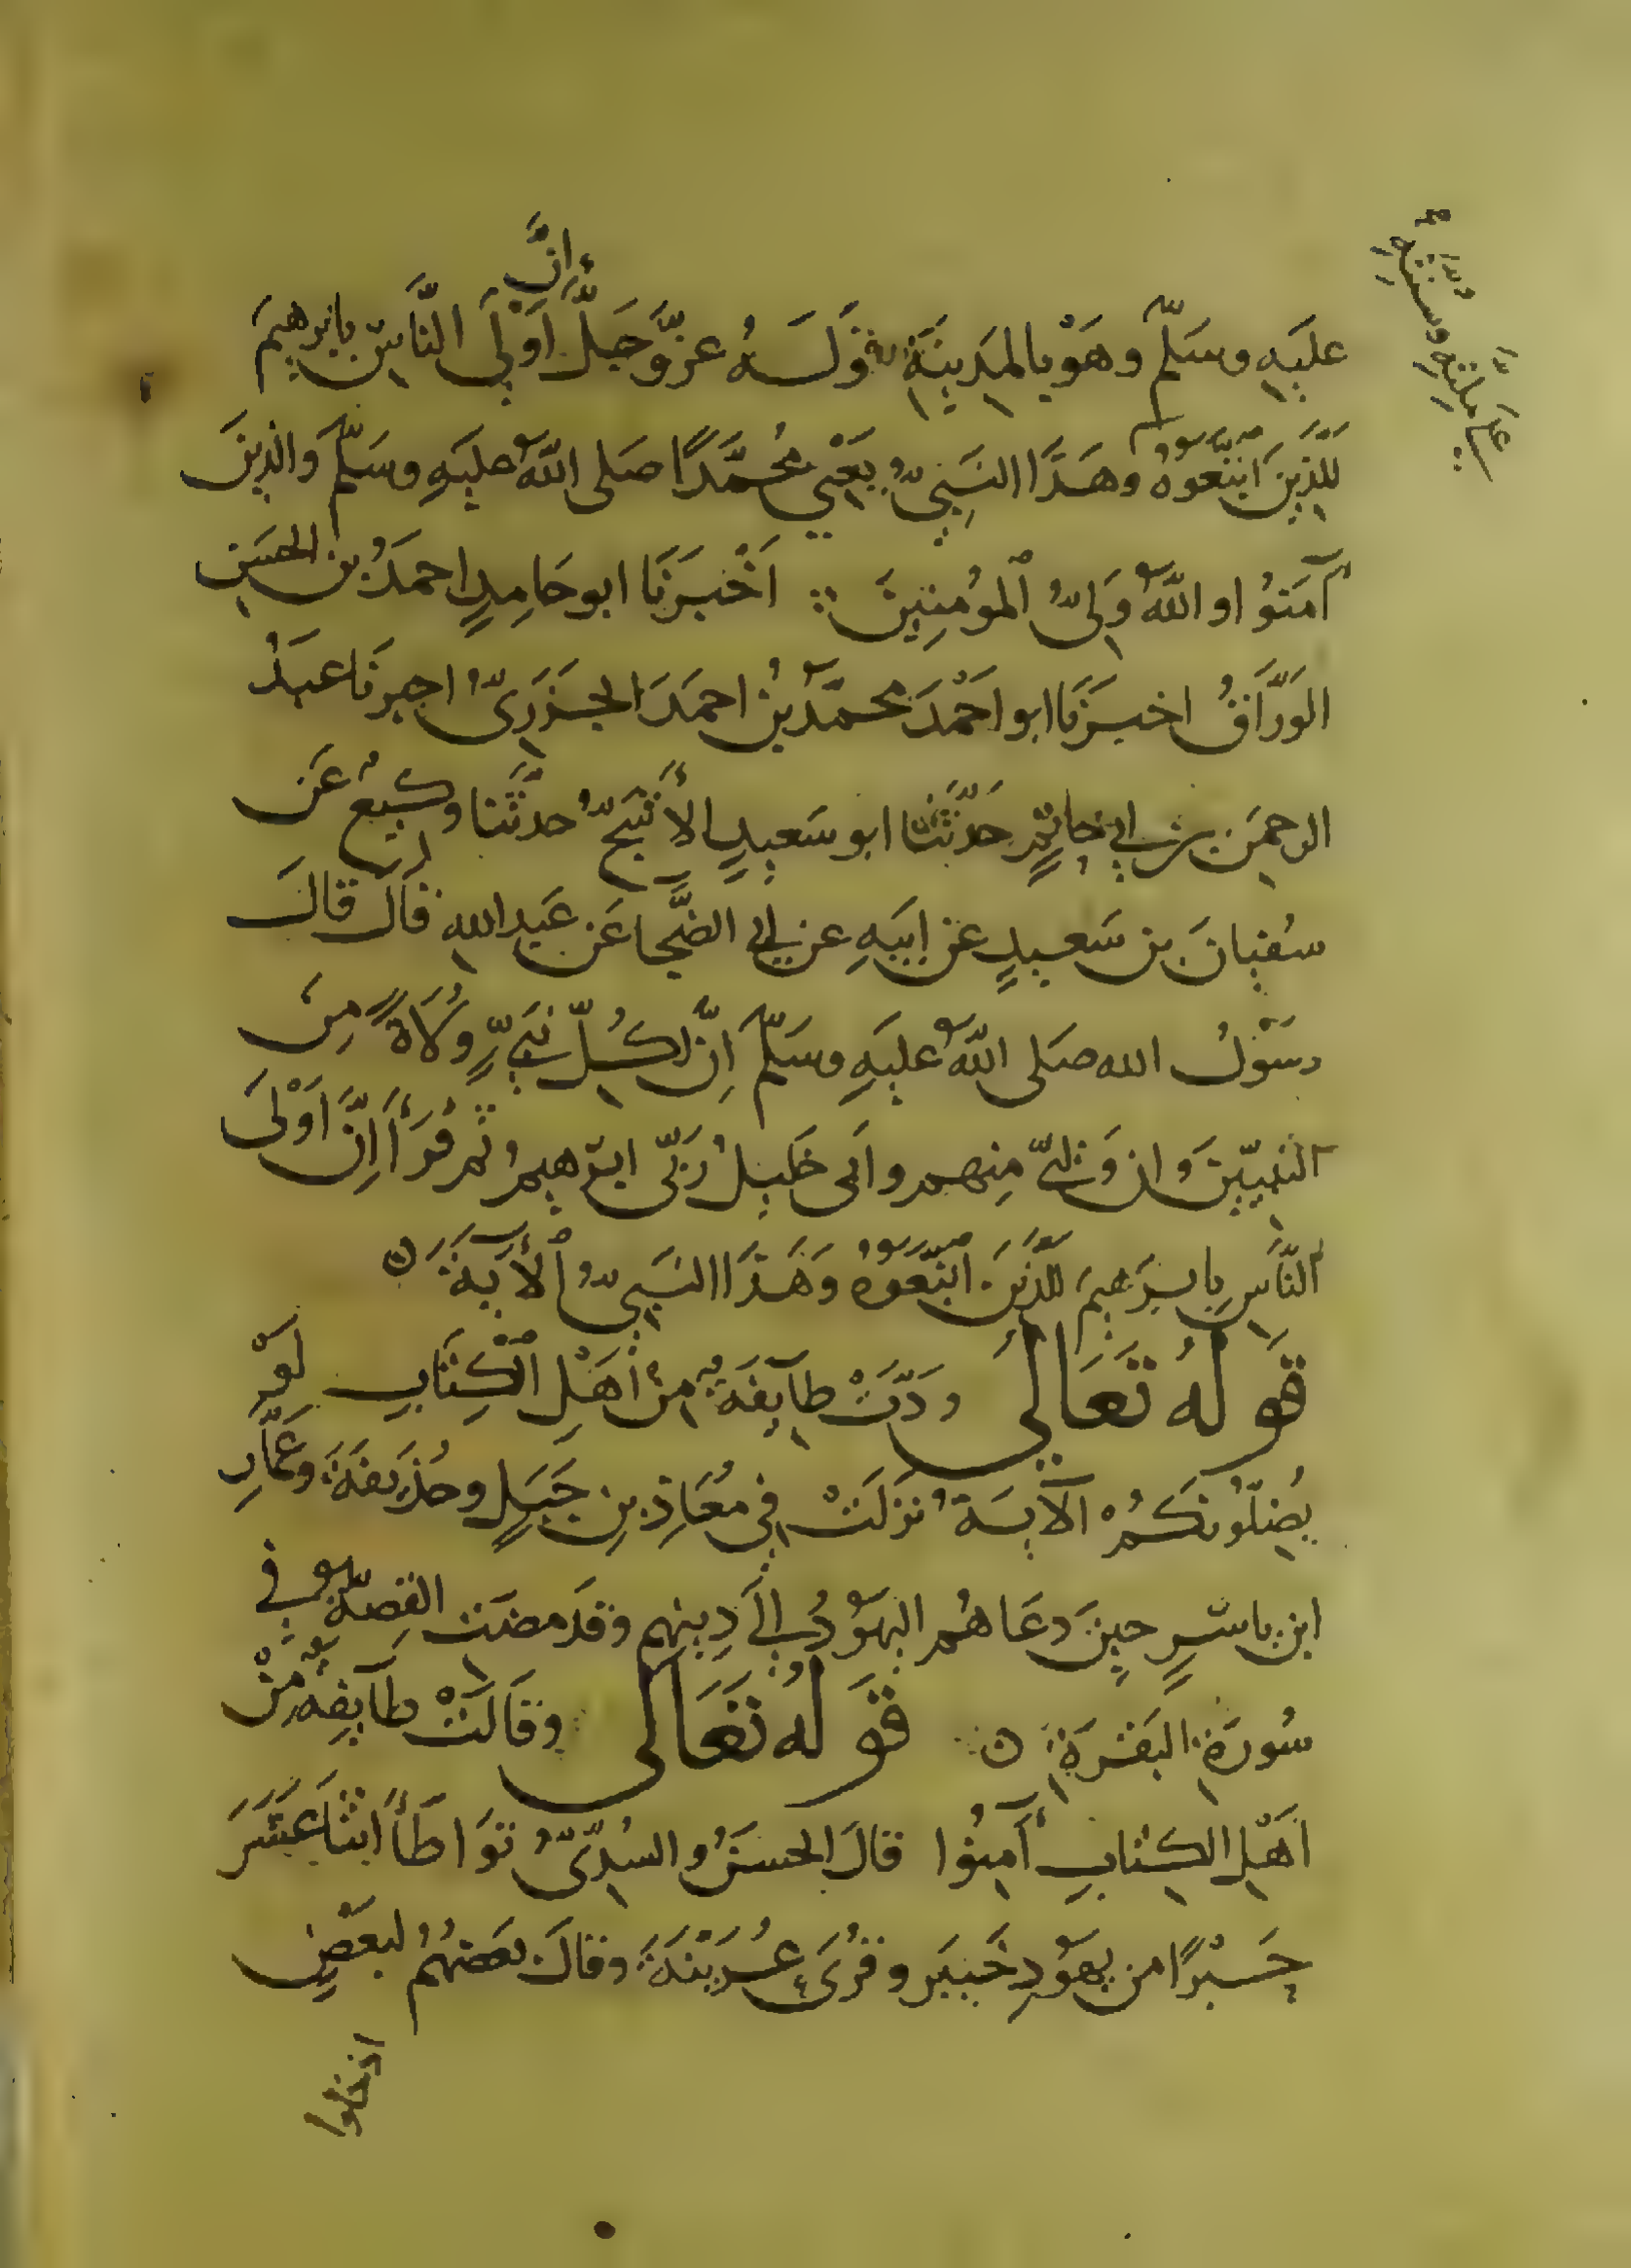 عَلَيْهِ وسَلَّمَ وهَوْ بالمَدِينَةِ قَوْلَهُ عَزَّ وَجَلَّ إنَّ أَوْلَى النَّاسِ بابْرهيمَ
لَلَّذِينَ اتَّبَعُوهُ وهَذَا النَّبِيُّ يَعْنِي مُحَمَّدًا صَلى اللَّهُ عليَهِ وسَلَّمَ وَالذِينَ
آمَنُوا واللَّهُ وَلِىُّ المُؤمِنِينَ أَخْبَرَنَا ابو حَامِدٍ احمَدُ بن الحسَنِ
الوَرَّاقُ اخبَرَنَا ابو احْمَدَ محمَّدُ بْنُ احمَدَ الجَزَرِىُّ اخبرنَا عَبدُ
الرحمَنِ بن ابي حاتمٍ حَدَّثَنَا ابو سَعِيدٍ الأَشَجُّ حدثَّنا وكيعُ عَن
سُفيانَ بن سَعيدٍ عن ابِيَهِ عن ابي الضُّحا عَن عَبدِ الله قالَ قالَ
رسَوْلُ الله صَلى اللَّهُ عليَهِ وسَلَّمَ إنَّ لِكُلِّ نَبِىٍّ وُلَاةً مِنَ
النَّبِيّينَ وَان وَلِيِّي مِنهم وابى خَليلُ رَبّى ابرهيمُ ثم قَرَأَ إِنَّ أَوْلَى
النَّاسِ بِابرَهيمَ لَلَّذِينَ اتَّبَعَوهُ وَهَذَا النَّبِيُّ الأَيَةَ ه
قَوْلُهُ تَعَالَى وَدَّتْ طآيِفَةٌ مِنْ أَهْلِ الْكِتَابِ لَوْ
يُضِلّوُنكَمُ الآيَةُ نَزَلَتْ فِى مُعَاذِ بنِ جَبَلٍ وحُذَيفَةَ وعَمَّارِ
ابن ياسِرٍ حِينَ دعَاهُم اليهَوُدُ الَى دِينِهم وقدَ مضَت القِصةُ في
سُورَةِ البَقَرَةِ ه قَوْلُهُ تَعَالى وقَالَتْ طَآيِفةٌ مِنْ
اَهْلِ الكِتَابِ آمِنُوا قالَ الحسَنُ والسُدِّىُّ تَوَاطَأَ اثْنَا عَشَرَ
حَبْرًا من يهَوُدِ خَيبَر وقُرَى عُرَيْنَةَ وقالَ بعَضهُمُ لبَعْضٍ
ادخلوا
عَلَى مِلتهِ وسُنتهِ